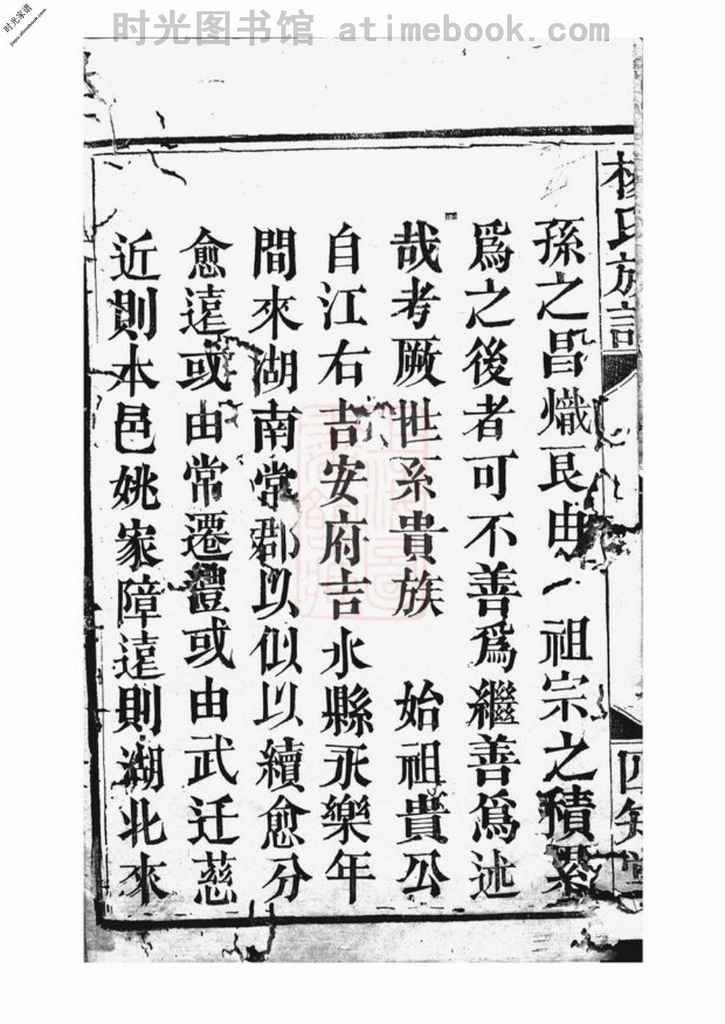 时光图书馆 atimebook.com
时光家谱
楊氏族譜
四知堂
孫之昌熾艮由 祖宗之積累
爲之後者可不善爲繼善爲述
哉考厥世系貴族 始祖貴公
自江右吉安府吉水縣永樂年
間來湖南常郡以似以續愈分
愈遠或由常遷澧或由武迁慈
近則本邑姚家障遠則湖北來